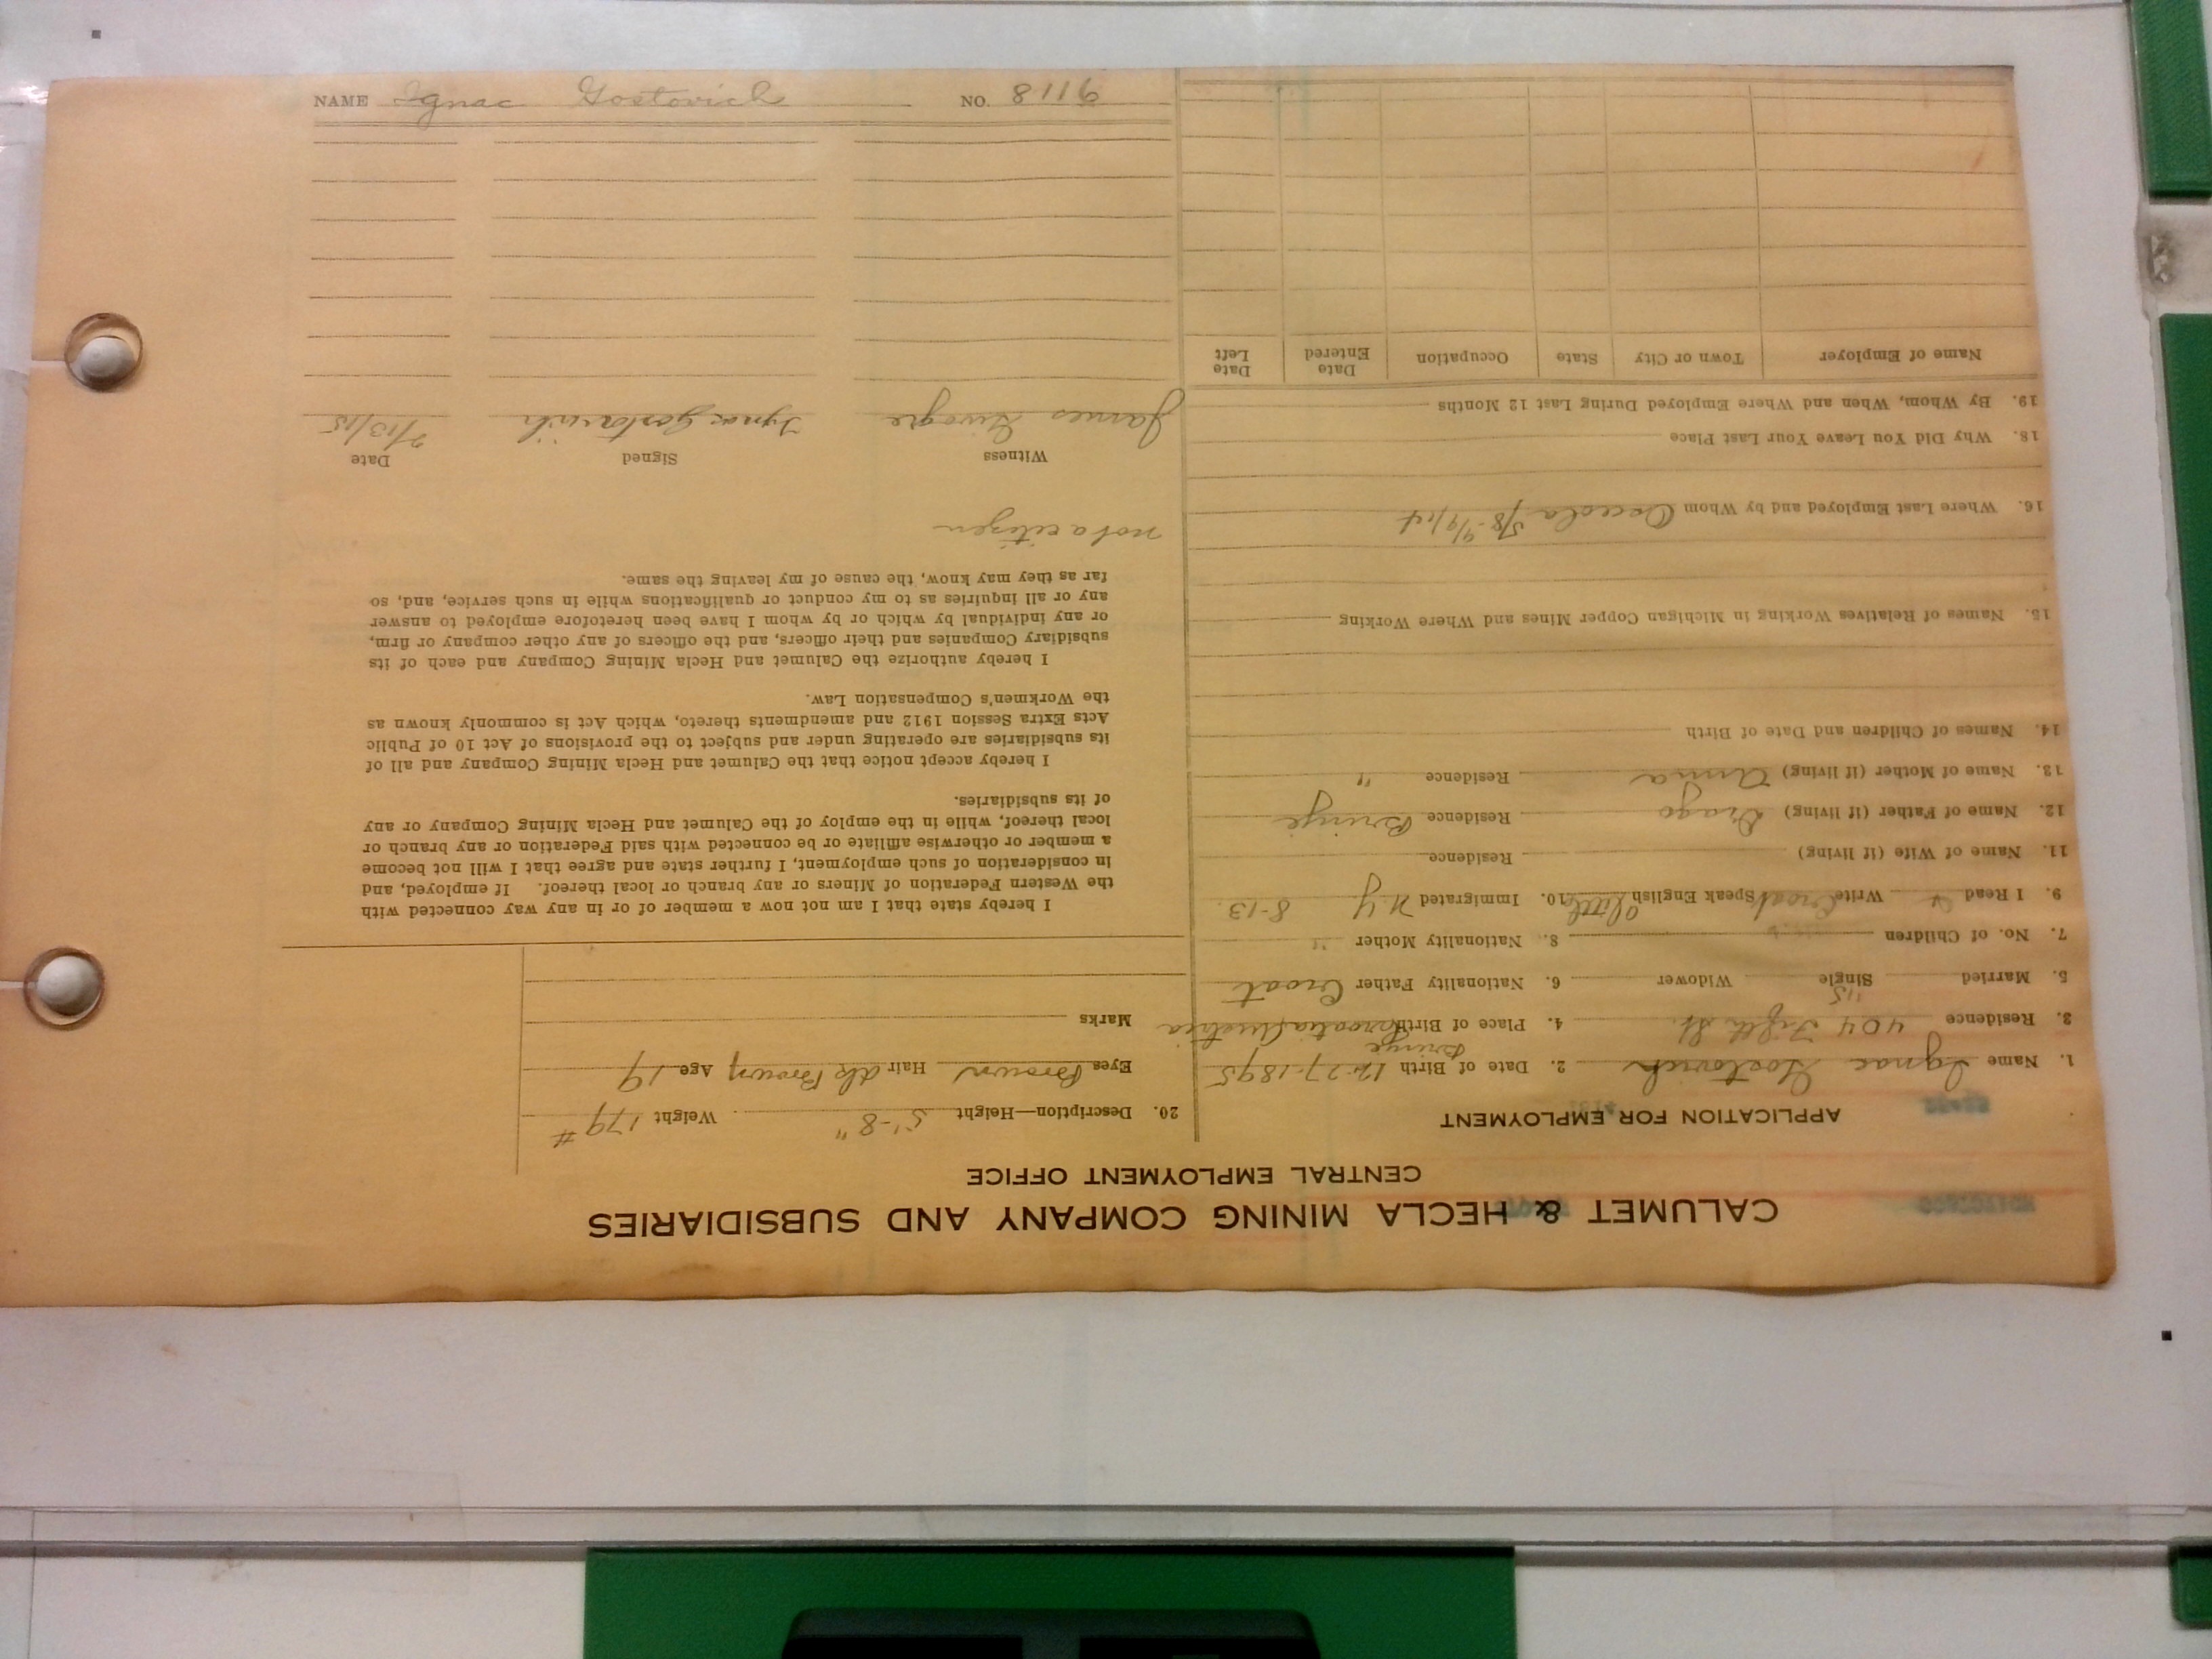 CALUMET & HECLA MINING COMPANY AND SUBSIDIARIES
CENTRAL EMPLOYMENT OFFICE
APPLICATION FOR EMPLOYMENT
1. Name Ignac Gostovich 2. Date of Birth 12-27-1895
3. Residence 404 Fifth St. 4. Place of Birth Brinje Croatia Austria
5. Married Single "S" Widower 6. Nationality Father Croat
7. No. of Children 8. Nationality Mother "
9. I Read Write Croat Speak English Little 10. Immigrated N.Y 8-13.
11. Name of Wife (if living) Residence
12. Name of Father (if living) Drago Residence Brinje
13. Name of Mother (if living) Anna Residence "
14. Names of Children and Date of Birth
15. Names of Relatives Working in Michigan Copper Mines and Where Working
16. Where Last Employed and by Whom Osceola
18. Why Did You Leave Your Last Place
19. By Whom, When and Where Employed During Last 12 Months
Name of Employer Town or City State Occupation Date Entered Date Left
20. Description—Height 5'-8" Weight 179 #
Eyes Brown Hair dk Brown Age 19
Marks
I hereby state that I am not now a member of or in any way connected with
the Western Federation of Miners or any branch or local thereof. If employed, and
in consideration of such employment, I further state and agree that I will not become
a member or otherwise affiliate or be connected with said Federation or any branch or
local thereof, while in the employ of the Calumet and Hecla Mining Company or any
of its subsidiaries.
I hereby accept notice that the Calumet and Hecla Mining Company and all of
its subsidiaries are operating under and subject to the provisions of Act 10 of Public
Acts Extra Session 1912 and amendments thereto, which Act is commonly known as
the Workmen's Compensation Law.
I hereby authorize the Calumet and Hecla Mining Company and each of its
subsidiary Companies and their officers, and the officers of any other company or firm,
or any individual by which or by whom I have been heretofore employed to answer
any or all inquiries as to my conduct or qualifications while in such service, and, so
far as they may know, the cause of my leaving the same.
not a citizen
Witness Signed Date
James Ignac Gostovich /13/15
NAME Ignac Gostovich NO. 8116